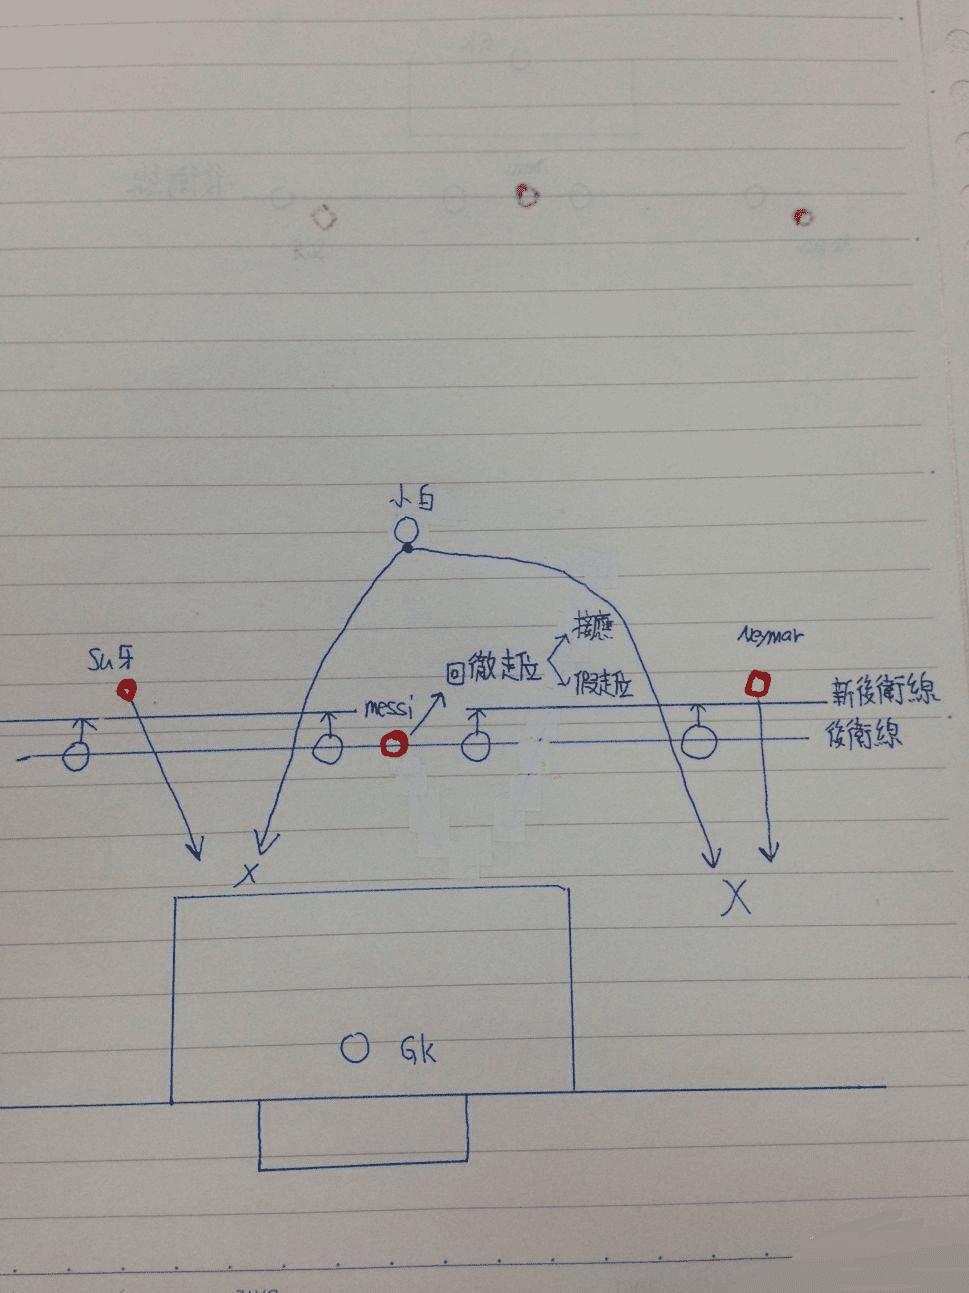 小白
接應
Neymar
Su牙
回撤走位
假走位
新後衛線
messi
後衛線
X
X
Gk